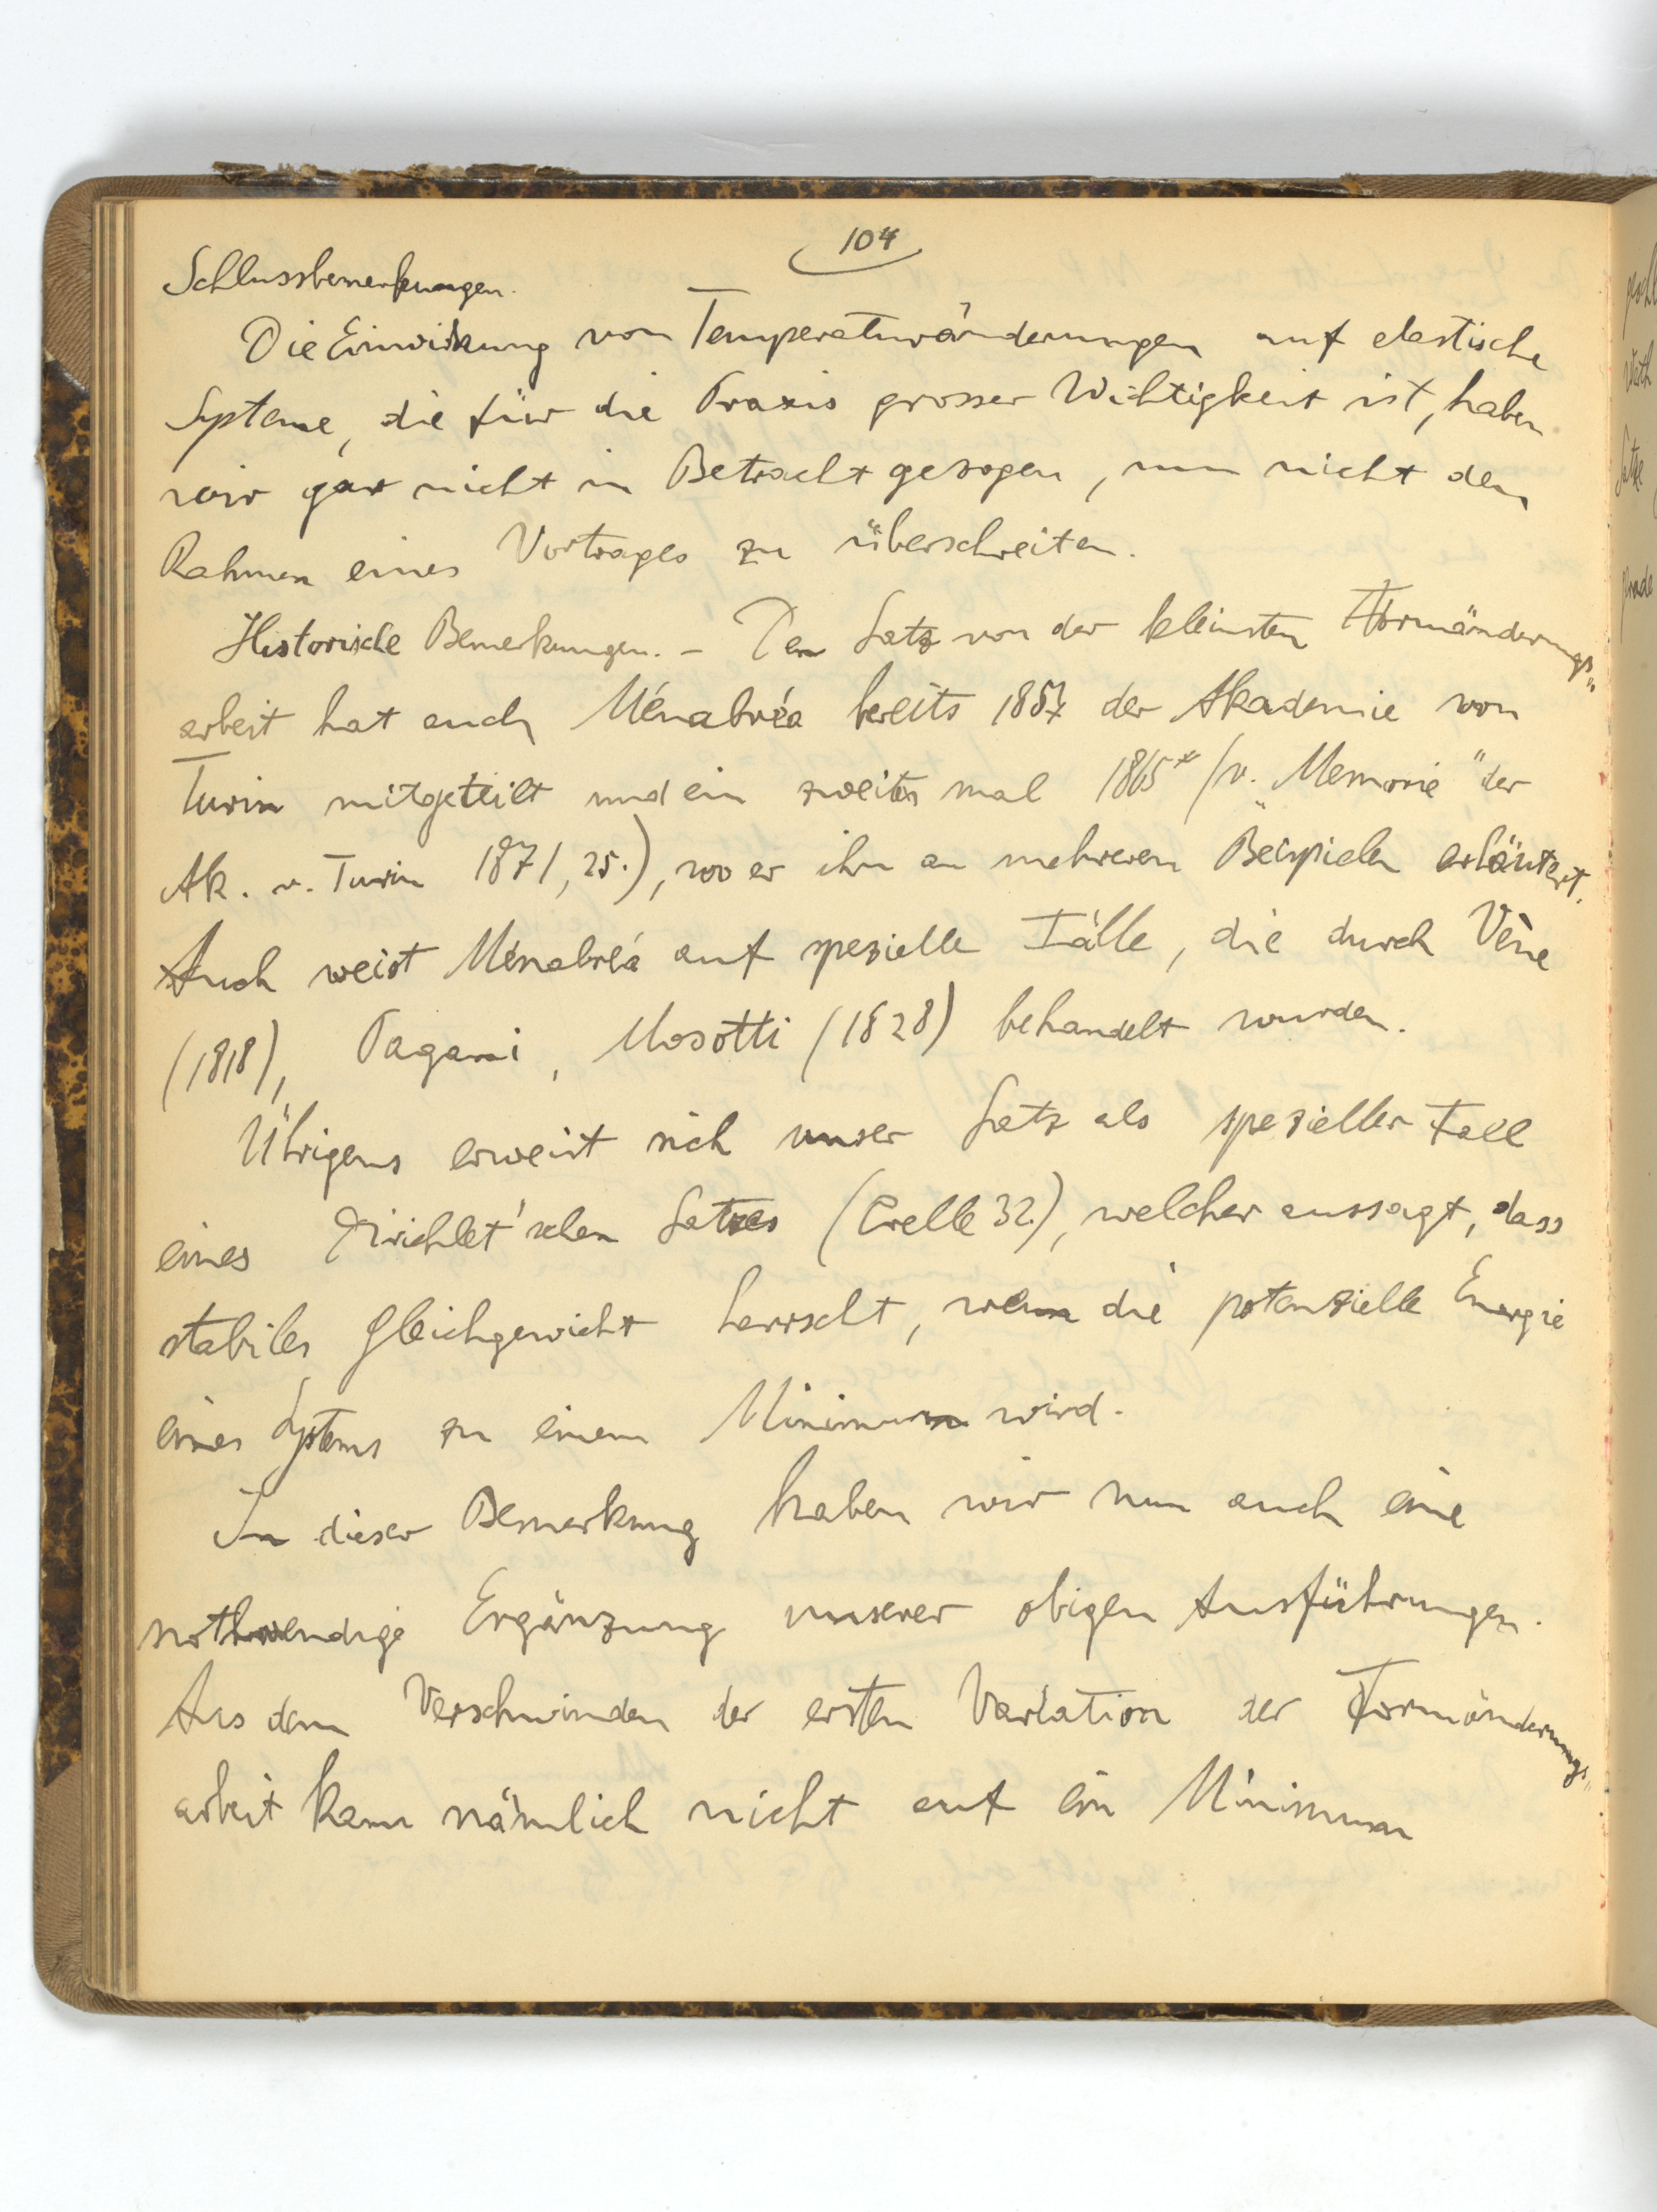 104
Schlussbemerkungen.
Die Einwirkung von Temperaturänderungen auf elastische
Systeme, die für die Praxis grosser Wichtigkeit ist, haben
wir gar nicht in Betracht gezogen, um nicht den
Rahmen eines Vortrages zu überschreiten.
Historische Bemerkungen. – Den Satz von der kleinsten Formänderungs„
arbeit hat auch Ménabréa bereits 1857 der Akademie von
Turin mitgeteilt und ein zweites mal 1865* (v. „Memorie" der
Ak. v. Turin 1871, 25.), wo er ihn an mehreren Beispielen erläutert.
Auch weist Ménabréa auf spezielle Fälle, die durch Vène
(1818), Pagani, Mosotti (1828) behandelt wurden.
Übrigens erweist sich unser Satz als spezieller Fall
eines Dirichlet'schen Satzes (Crelle 32.), welcher aussagt, dass
stabiles Gleichgewicht herrscht, wenn die potenzielle Energie
eines Systems zu einem Minimum wird.
In dieser Bemerkung haben wir nun auch eine
nothwendige Ergänzung unserer obigen Ausführungen.
Aus dem Verschwinden der ersten Variation der Formänderungs„
arbeit kann nämlich nicht auf ein Minimum